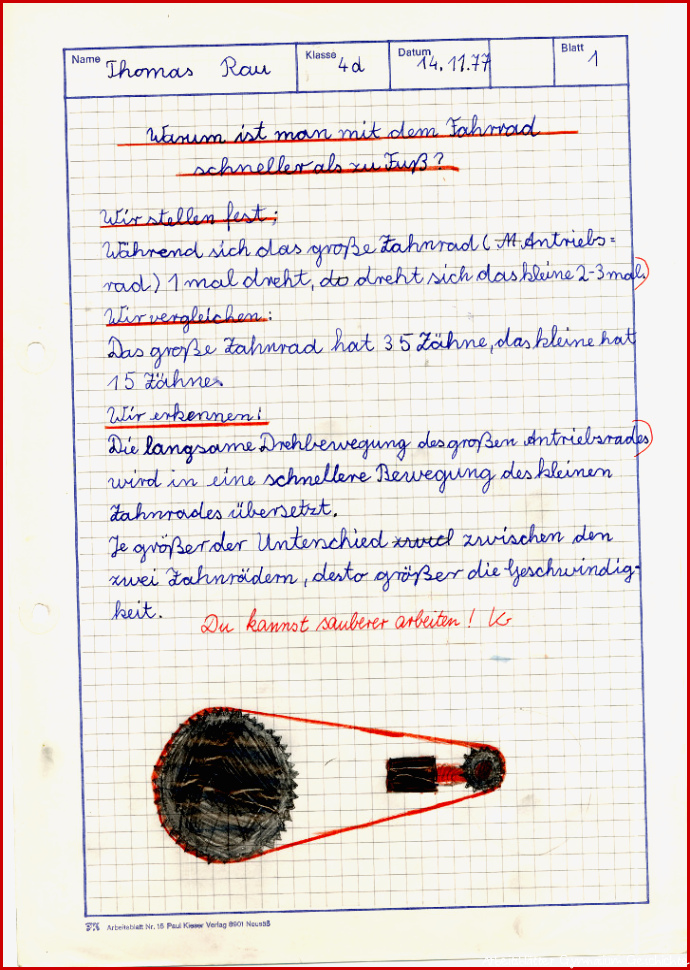 Name Thomas Rau Klasse 4d Datum 14.11.77 Blatt 1
Warum ist man mit dem Fahrrad
schneller als zu Fuß?
Wir stellen fest:
Während sich das große Zahnrad (M. Antriebs=
rad) 1 mal dreht, do dreht sich das kleine 2-3 mal.)
Wir vergleichen:
Das große Zahnrad hat 35 Zähne, das kleine hat
15 Zähne.
Wir erkennen!
Die langsame Drehbewegung des großen Antriebsrades)
wird in eine schnellere Bewegung des kleinen
Zahnrades übersetzt.
Je größer der Unterschied zwischen den
zwei Zahnrädern, desto größer die Geschwindig-
keit. Du kannst sauberer arbeiten! K
Arbeitsblatt Nr. 16 Paul Kieser Verlag 8901 Neusäß